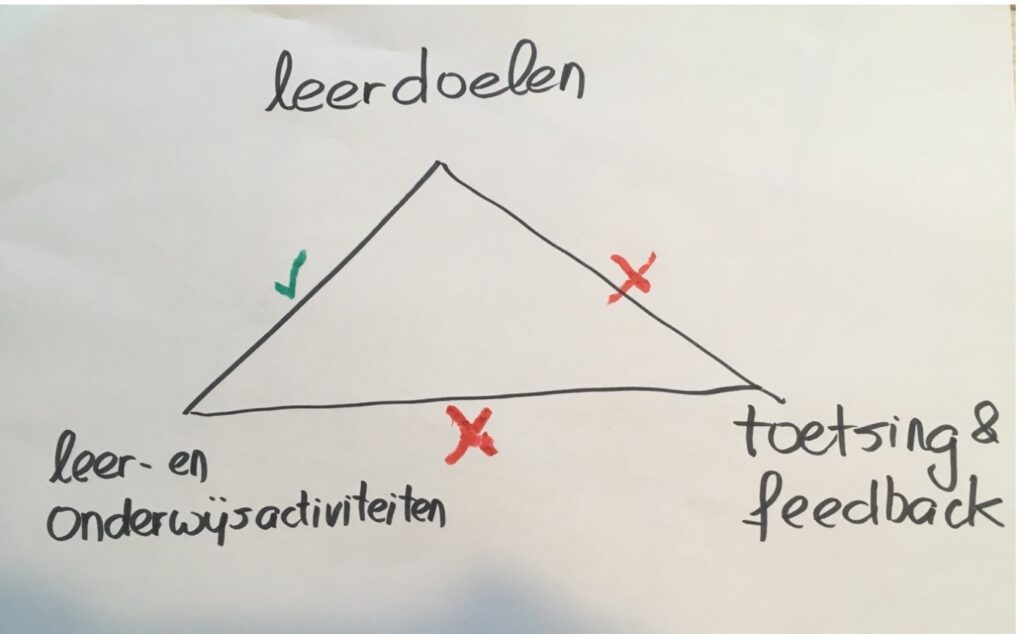 leerdoelen
leer- en
onderwijsactiviteiten
toetsing &
feedback